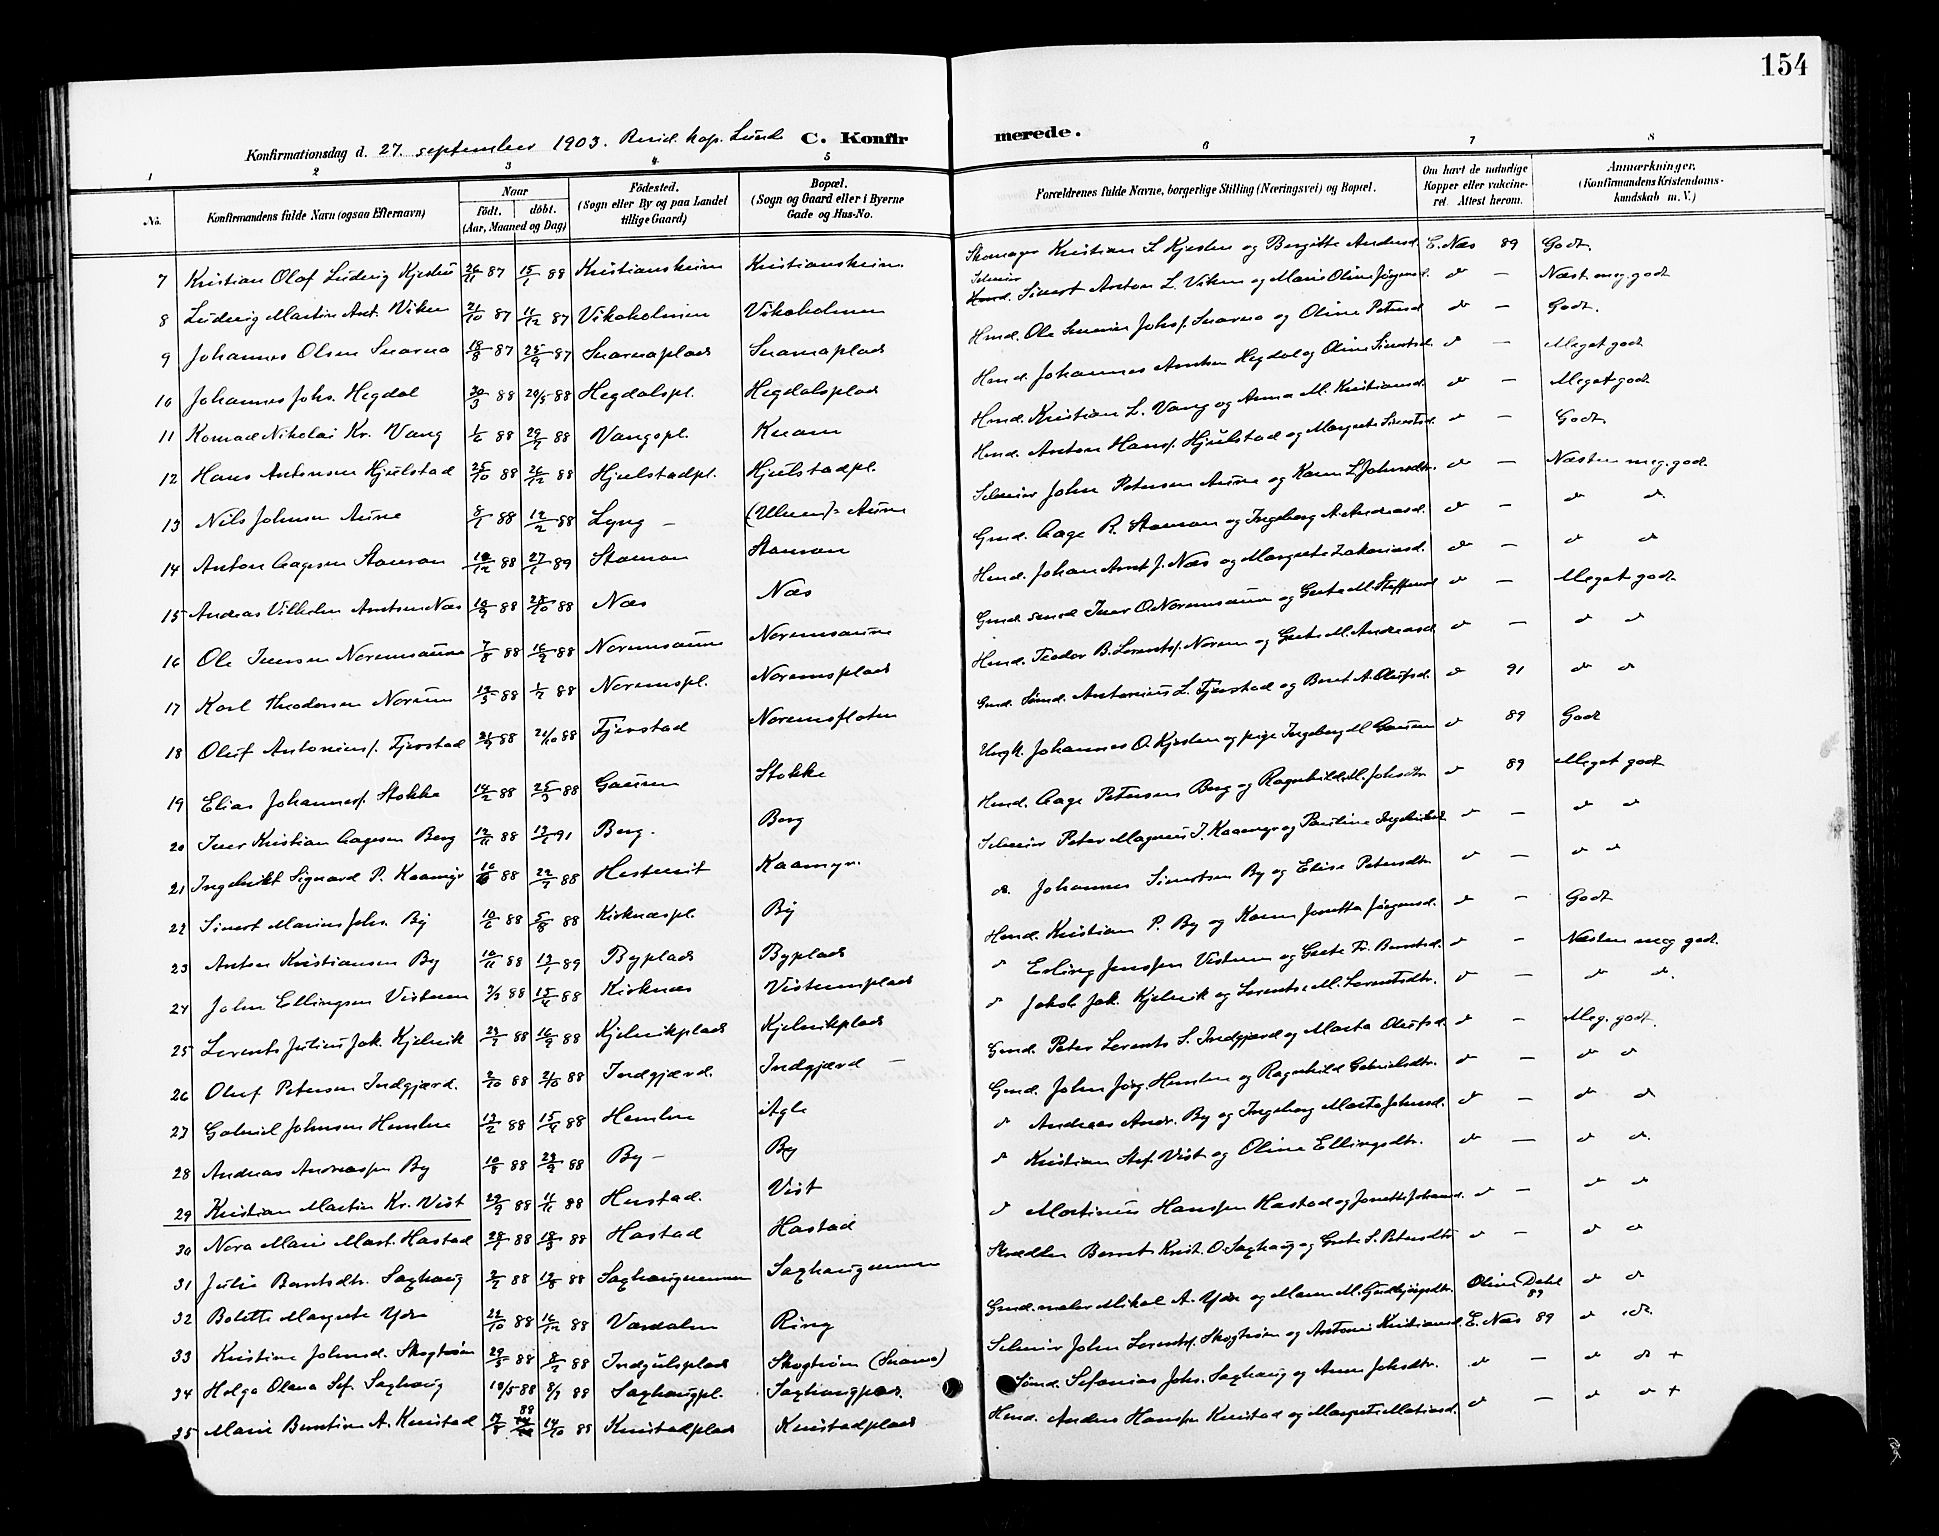 154
Konfirmationsdag d. 27. september 1903. Resid. kap. Lund C. Konfirmerede.
1 2 3 4 5 6 7 8
No. Konfirmandens fulde Navn (ogsaa Efternavn) Naar födt. döbt. (Aar, Maaned og Dag) Födested. (Sogn eller By og paa Landet tillige Gaard) Bopæl. (Sogn og Gaard eller i Byerne Gade og Hus-No. Forældrenes fulde Navne, borgerlige Stilling (Næringsvei) og Bopæl. Om havt de naturlige Kopper eller vakcineret. Attest herom. Anmærkninger. (Konfirmandens Kristendomskundskab m. V.)
7 Kristian Olaf Ludvig 26/11 87 15/1 88 Kristiansheim Kristiansheim. Skomager Kristian L. Kjesbu og Bergitte Andersd. E. Næs 89 Godt.
8 Ludvig Martin Ant. Viken 2/10 87 11/12 87 Vikaholmen Vikaholmen Selveier Sivert Anton L. Viken og Marie Oline Jørgensd. do — Næst. meg. godt
9 Johannes Olsen Snarno 18/8 87 25/9 87 Hmd. Ole Johs. og Oline Petersd do — Godt.
10 Johannes Johs. Hegdal 30/3 88 20/5 88 Hegdalspl. Hegdalsplads Hmd. Johannes Arntsen Hegdal og Oline Sivertsd. do — Meget godt
11 Konrad Nikolai Kr. Vang 1/6 88 29/7 88 Vangspl. Kvam Hmd. Kristian L. Vang og Anna M. Kristiansd. do — Meget godt
12 Hans Antonsen Hjulstad 25/10 88 26/12 88 Hjulstadpl. Hjulstadpl. Hmd. Anton Hans. Hjulstad og Margrete Sivertsd. do — Godt
13 Nils Johnsen Aune 8/1 88 12/2 88 Lyng — Aune Selveier John Petersen Aune og Karen L. Johnsdtr. do — Næsten meg. godt.
14 Anton Aagesen Stamnan 10/12 88 27/1 89 Stamnan Stamnan Gmd. Aage R. Stamnan og Ingeborg A. Andreasd. do — do do
15 Andreas Vilhelm Arntsen Næs 88 28/10 88 Næs Næs Hmd. Johan Arnt J. Næs og Margrete Zakariasd. do — do do
16 Ole Iversen Noremsaune 7/8 88 16/9 88 Noremsaune Noremsaune Gmd. Iver O. Noremsaune og Grete M. Steffensd do — Meget godt
17 Karl Theodorsen Norem 88 1/7 88 Noremspl. Noremsplads Hmd. Teodor B. Lorents. Norem og Grete M. Andreasd. do — do do
18 Oluf Antonius. Fjerstad 88 21/10 88 Fjerstad Noremsfloten Gmd. Sømd. Antonius L. Fjerstad og Beret A. Olufsd. do 91 do do
19 Elias Johannes. Stokke 14/2 88 25/3 88 Gausen Stokke Ungk. Johannes O. Kjesbu og pige Ingeborg M. Gausen do 89 Godt
20 Iver Kristian Aagesen Berg 88 91 Berg. Berg Hmd. Aage Petersen Berg og Ragnhild M. Johsdtr do 89 Meget godt
21 Ingebrikt Sigvard P. Kaamyr 88 22/7 88 Kaamyr. Selveier Peter Magnus J. Kaamyr og Pauline Ingebriktsd. do — do do
22 Sivert Marius Johs. By 10/6 88 5/8 88 Kirknæspl. By do. Johannes Sivertsen By og Elise Petersdtr. do — do do
23 Anton Kristiansen By 10/11 88 13/1 89 Byplads Byplads Hmd. Kristian P. By og Karen Jonetta Jørgensd. do — Godt
24 John Ellingsen Vistven 88 88 Kirknæs Vistvenplads do Jenssen og Grete Fr. Berntsd. do — Næsten meg godt.
25 Lorents Julius Jak. Kjelvik 88 16/9 88 Kjelvikplads Kjelvikplads do Jakob Jak. Kjelvik og Lorentse M. Lorentsdtr. do — do do.
26 Oluf Petersen Indgjærd. 2/10 88 88 Indgjærd. Indgjærd — Gmd. Peter Lorents S. Indgjærd og Marta Olufsd. do — Meg. godt.
27 Gabriel Johnsen Hemlen 13/2 88 15/4 88 Hemlen Agle Gmd. John Jörg. Hemlen og Ragnhild Gabrielsdtr. do — do do
28 Andreas Andreassen By 10/8 88 88 By — By do Andreas Andr. By og Ingeborg Marta Johnsd. do — do do
29 Kristian Martin Kr. Vist 29/9 88 11/11 88 Hustad. Vist do Kristian Stef. Vist og Oline Ellingsdtr. do — do do.
30 Nora Marie Mart. Hastad 28/1 88 18/3 88 Hastad Hastad do Martinus Hanssen Hastad og Jonette Johansd. do — do do
31 Julie Berntsdtr. Saxhaug 2/7 88 88 Saxhaug Skrædder Bernt Krist. O. Saxhaug og Grete S. Petersdtr do — do do
32 Bolette Margrete Ydse 22/10 88 16/12 88 Værdalen Ring Gmd. maler Mikal A. Ydse og Maren M. Oline Dahl 89 do do
33 Kristine Johnsd. Skogtrøen 29/5 88 8/7 88 Skogtrøen (Snaasa) Selveier John Lorents. Skogtrøen og Antonie Kristiansd. E. Næs 89 do do
34 Helga Olava Sef. Saxhaug 18/5 88 8/7 88 Saxhaugpl. Saxhaugplads. Sømd. Sefanias Johs. Saxhaug og Anne Johsdtr. do — do do +
35 Marie Berntine A. Knustad 88 14/10 88 Knustadplads Knustadplads Hmd. Anders Hanssen Knustad og Margrete do — do do +